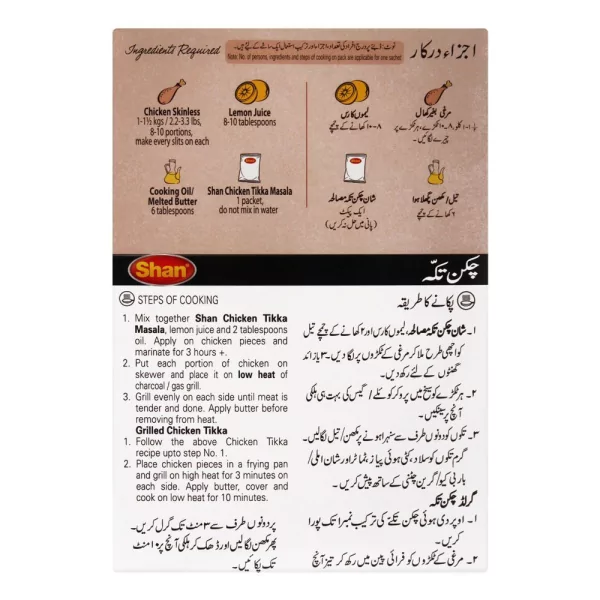 Ingredients Required
نوٹ: ڈبے پر درج افراد کی تعداد، اجزاء اور ترکیب استعمال ایک ساشے کے لیے ہیں۔
Note: No. of persons, ingredients and steps of cooking on pack are applicable for one sachet
اجزاء درکار
Chicken Skinless
1-1½ kgs / 2.2-3.3 lbs,
8-10 portions,
make every slits on each
Lemon Juice
8-10 tablespoons
لیموں کا رس
۸-۱۰ کھانے کے چمچے
مرغی بغیر کھال
۱-۱½ کلو، ۸-۱۰ ٹکڑے، ہر ٹکڑے پر
چیرے لگائیں۔
Cooking Oil/
Melted Butter
6 tablespoons
Shan Chicken Tikka Masala
1 packet,
do not mix in water
شان چکن تکہ مصالحہ
ایک پیکٹ
(پانی میں حل نہ کریں)
تیل/مکھن پگھلا ہوا
۶ کھانے کے چمچے
Shan
چکن تکّہ
STEPS OF COOKING
1. Mix together Shan Chicken Tikka
Masala, lemon juice and 2 tablespoons
oil. Apply on chicken pieces and
marinate for 3 hours +.
2. Put each portion of chicken on
skewer and place it on low heat of
charcoal / gas grill.
3. Grill evenly on each side until meat is
tender and done. Apply butter before
removing from heat.
Grilled Chicken Tikka
1. Follow the above Chicken Tikka
recipe upto step No. 1.
2. Place chicken pieces in a frying pan
and grill on high heat for 3 minutes on
each side. Apply butter, cover and
cook on low heat for 10 minutes.
پکانے کا طریقہ
۱۔ شان چکن تکہ مصالحہ، لیموں کا رس اور ۲ کھانے کے چمچے تیل
کو اچھی طرح ملا کر مرغی کے ٹکڑوں پر لگا دیں۔ ۳ یا زائد
گھنٹوں کے لئے رکھ دیں۔
۲۔ ہر ٹکڑے کو سیخ میں پرو کر کوئلے/ گیس کی بہت ہی ہلکی
آنچ پر سینکیں۔
۳۔ تکوں کو دونوں طرف سے سنہرا ہونے پر مکھن/ تیل لگالیں۔
گرم تکوں کو سلاد، کٹی ہوئی پیاز، ٹماٹر اور شان املی/
باربی کیو/ گرین چٹنی کے ساتھ پیش کریں۔
گرلڈ چکن تکہ
۱۔ اوپر دی ہوئی چکن تکے کی ترکیب نمبر ۱ تک پورا
کریں۔
۲۔ مرغی کے ٹکڑوں کو فرائی پین میں رکھ کر تیز آنچ
پر دونوں طرف سے ۳ منٹ تک گرل کریں۔
پھر مکھن لگالیں اور ڈھک کر ہلکی آنچ پر ۱۰ منٹ
تک پکائیں۔